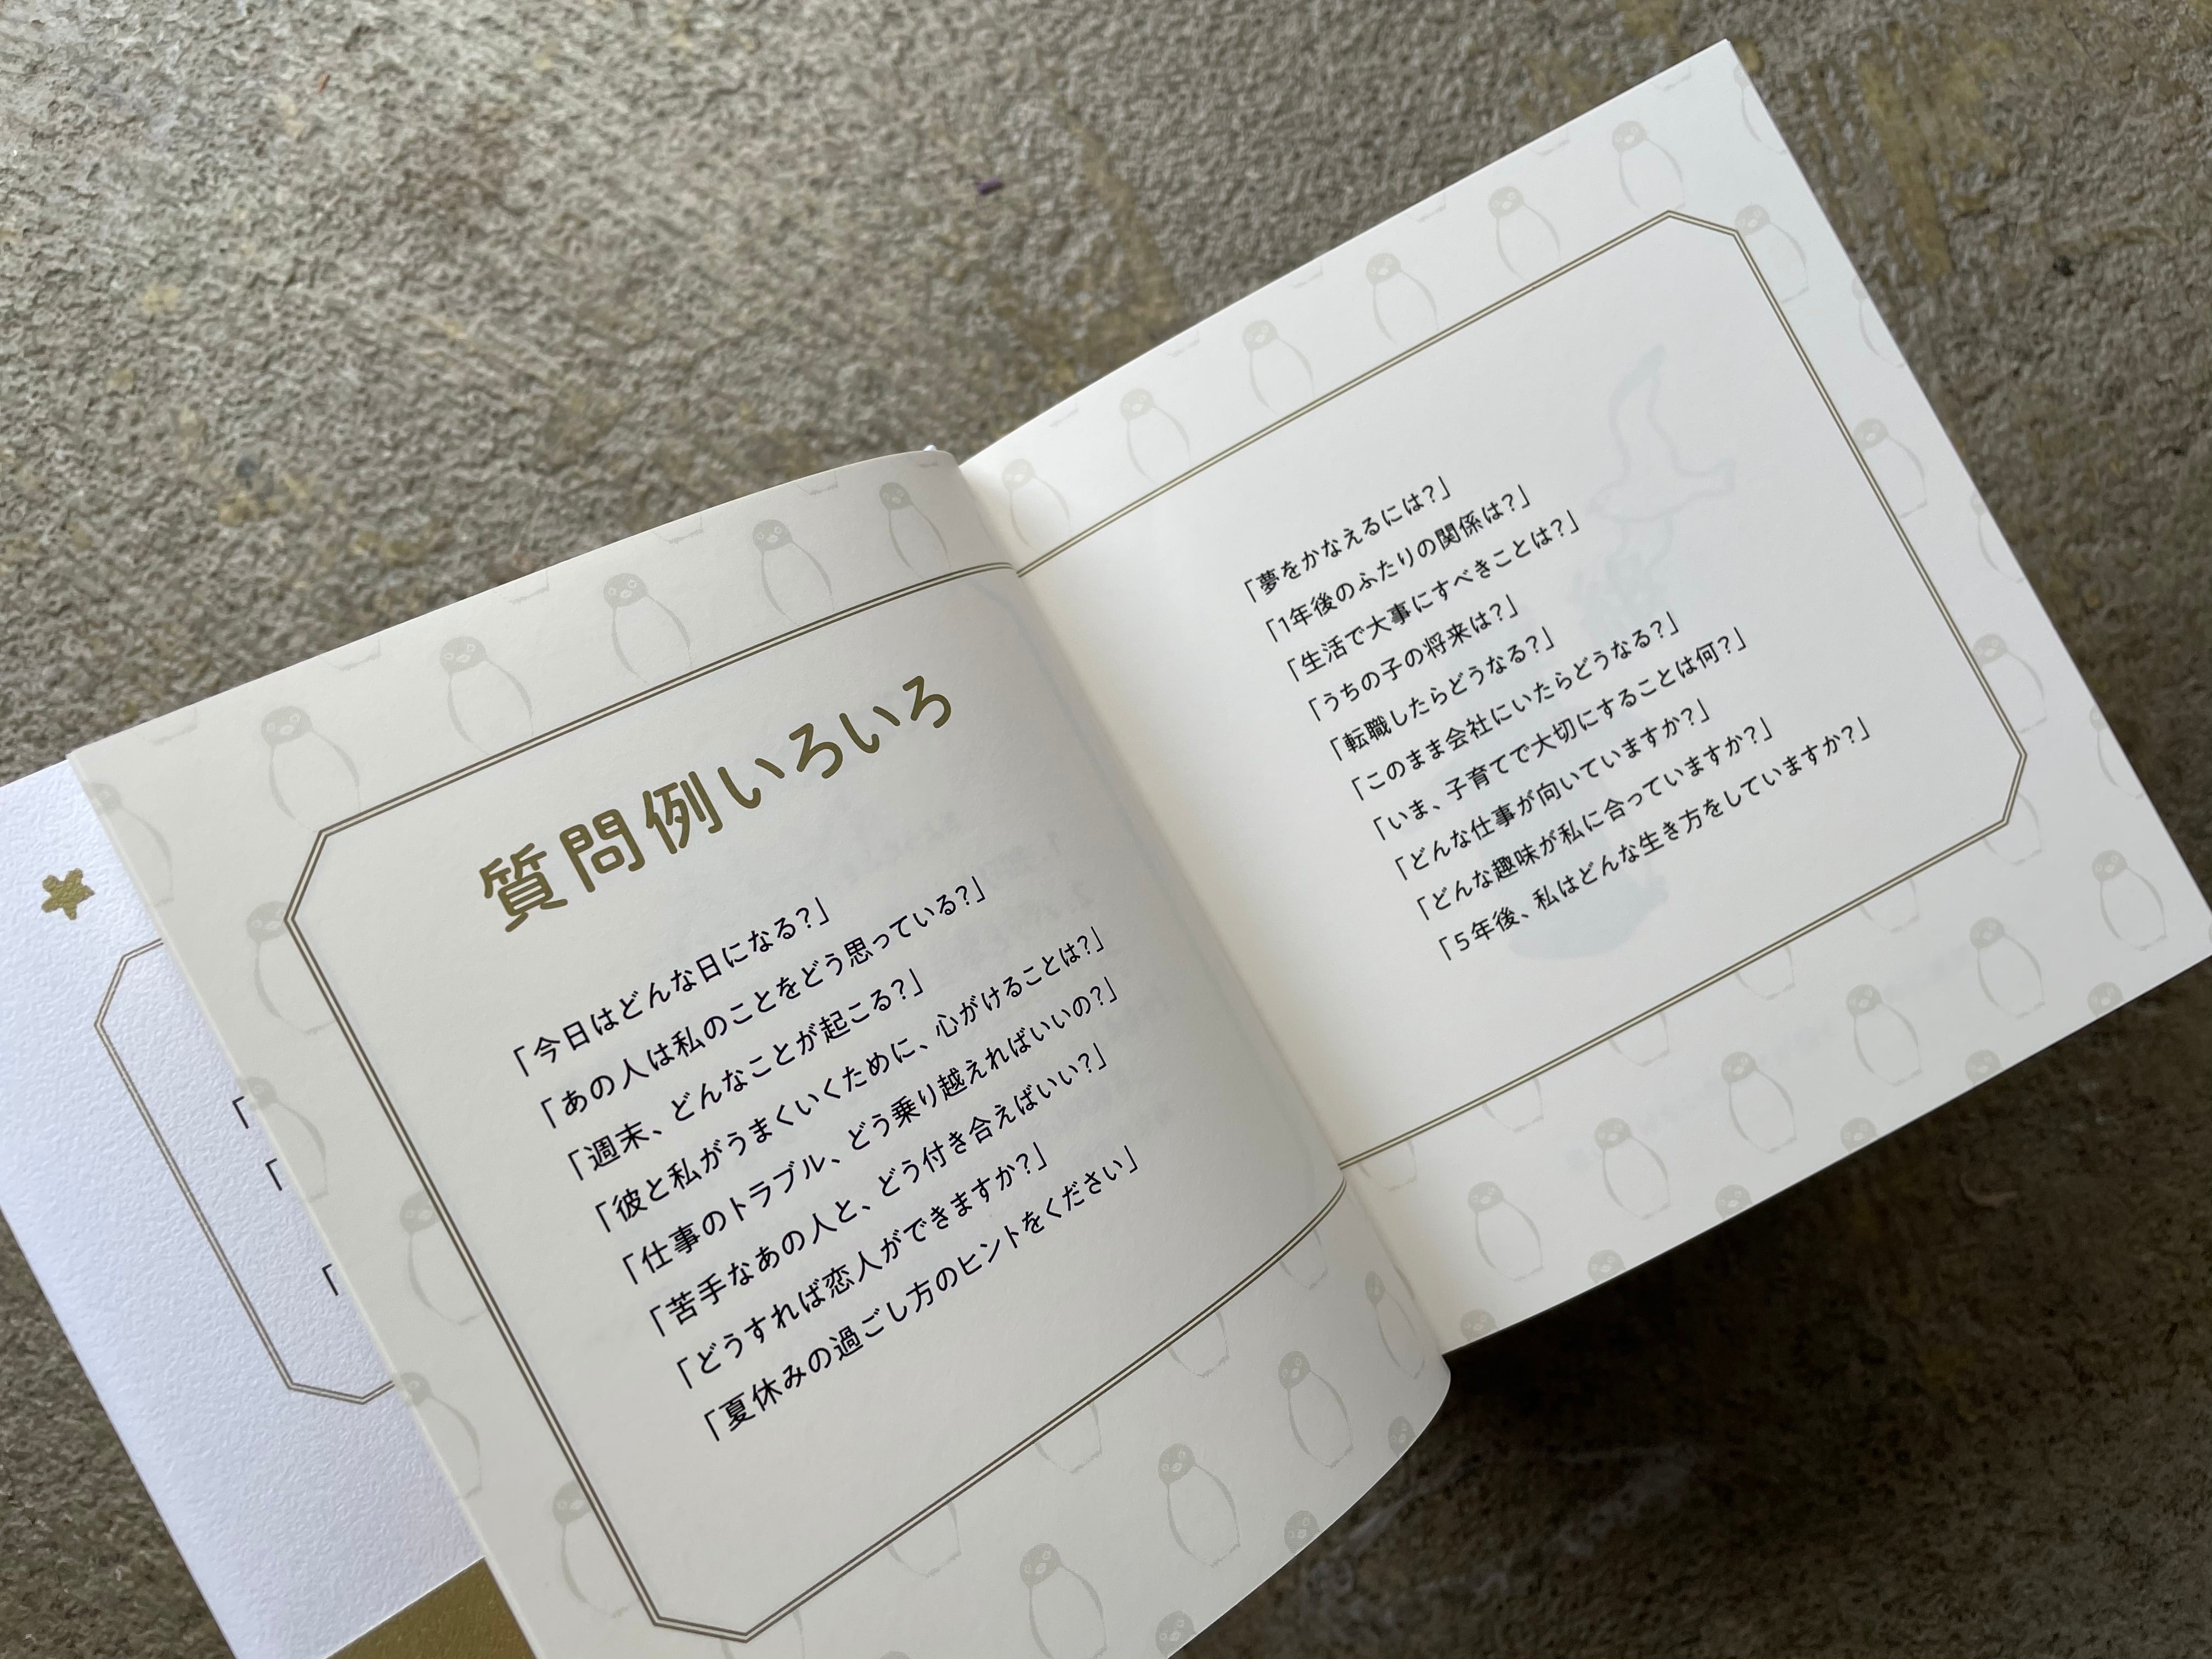 質問例いろいろ
「今日はどんな日になる?」
「あの人は私のことをどう思っている?」
「週末、どんなことが起こる?」
「彼と私がうまくいくために、心がけることは?」
「仕事のトラブル、どう乗り越えればいいの?」
「苦手なあの人と、どう付き合えばいい?」
「どうすれば恋人ができますか?」
「夏休みの過ごし方のヒントをください」
「夢をかなえるには?」
「1年後のふたりの関係は?」
「生活で大事にすべきことは?」
「うちの子の将来は?」
「転職したらどうなる?」
「このまま会社にいたらどうなる?」
「いま、子育てで大切にすることは何?」
「どんな仕事が向いていますか?」
「どんな趣味が私に合っていますか?」
「5年後、私はどんな生き方をしていますか?」